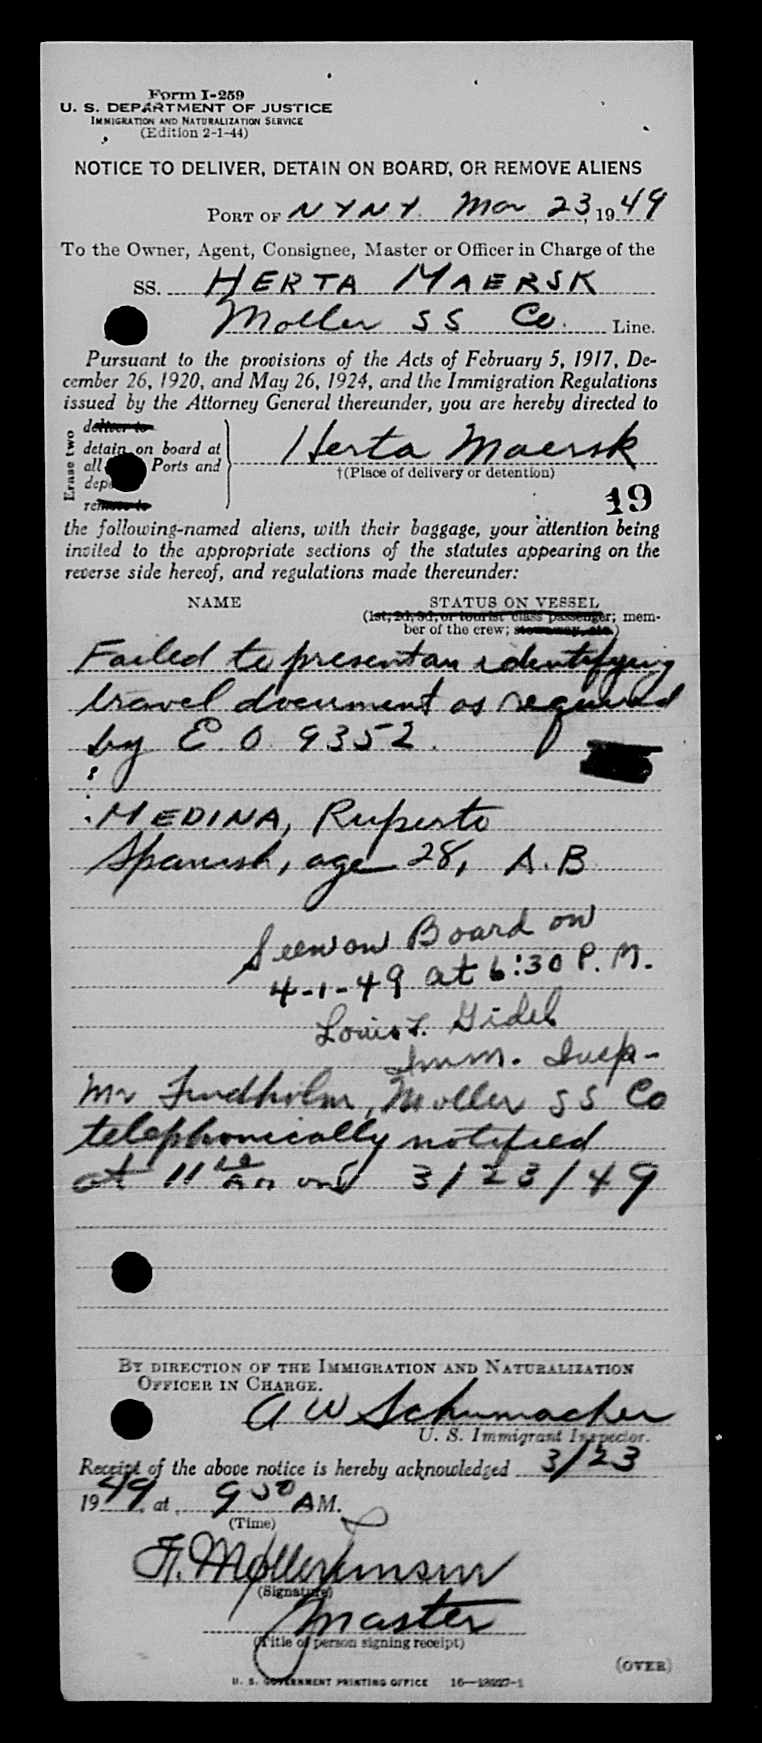 Form I-259
U. S. DEPARTMENT OF JUSTICE
IMMIGRATION AND NATURALIZATION SERVICE
(Edition 2-1-44)
NOTICE TO DELIVER, DETAIN ON BOARD, OR REMOVE ALIENS
PORT OF N Y N Y. Mar 23, 1949
To the Owner, Agent, Consignee, Master or Officer in Charge of the
SS. HERTA MAERSK
Moller S S Co. Line.
Pursuant to the provisions of the Acts of February 5, 1917, De-
cember 26, 1920, and May 26, 1924, and the Immigration Regulations
issued by the Attorney General thereunder, you are hereby directed to
Erase two
deliver to
detain on board at
all Ports and
remove to
Herta Maersk
†(Place of delivery or detention)
19
the following-named aliens, with their baggage, your attention being
invited to the appropriate sections of the statutes appearing on the
reverse side hereof, and regulations made thereunder:
NAME STATUS ON VESSEL
(1st, 2d, 3d, or tourist class passenger; mem-
ber of the crew; stowaway, etc.)
Failed to present an identifying
travel document as required
by E O 9352.
MEDINA, Ruperto
Spanish, age 28, A. B
Seen on Board on
4-1-49 at 6:30 P. M.
Louis F. Gidel
Imm. Insp-
Mr Lindholm, Moller S S Co
telephonically notified
at 11 am on 3/23/49
BY DIRECTION OF THE IMMIGRATION AND NATURALIZATION
OFFICER IN CHARGE.
A W Schumacher
U. S. Immigrant Inspector.
Receipt of the above notice is hereby acknowledged 3/23
1949, at 9 50 AM.
(Time)
(Signature)
Master
(Title of person signing receipt)
(OVER)
U. S. GOVERNMENT PRINTING OFFICE 16—